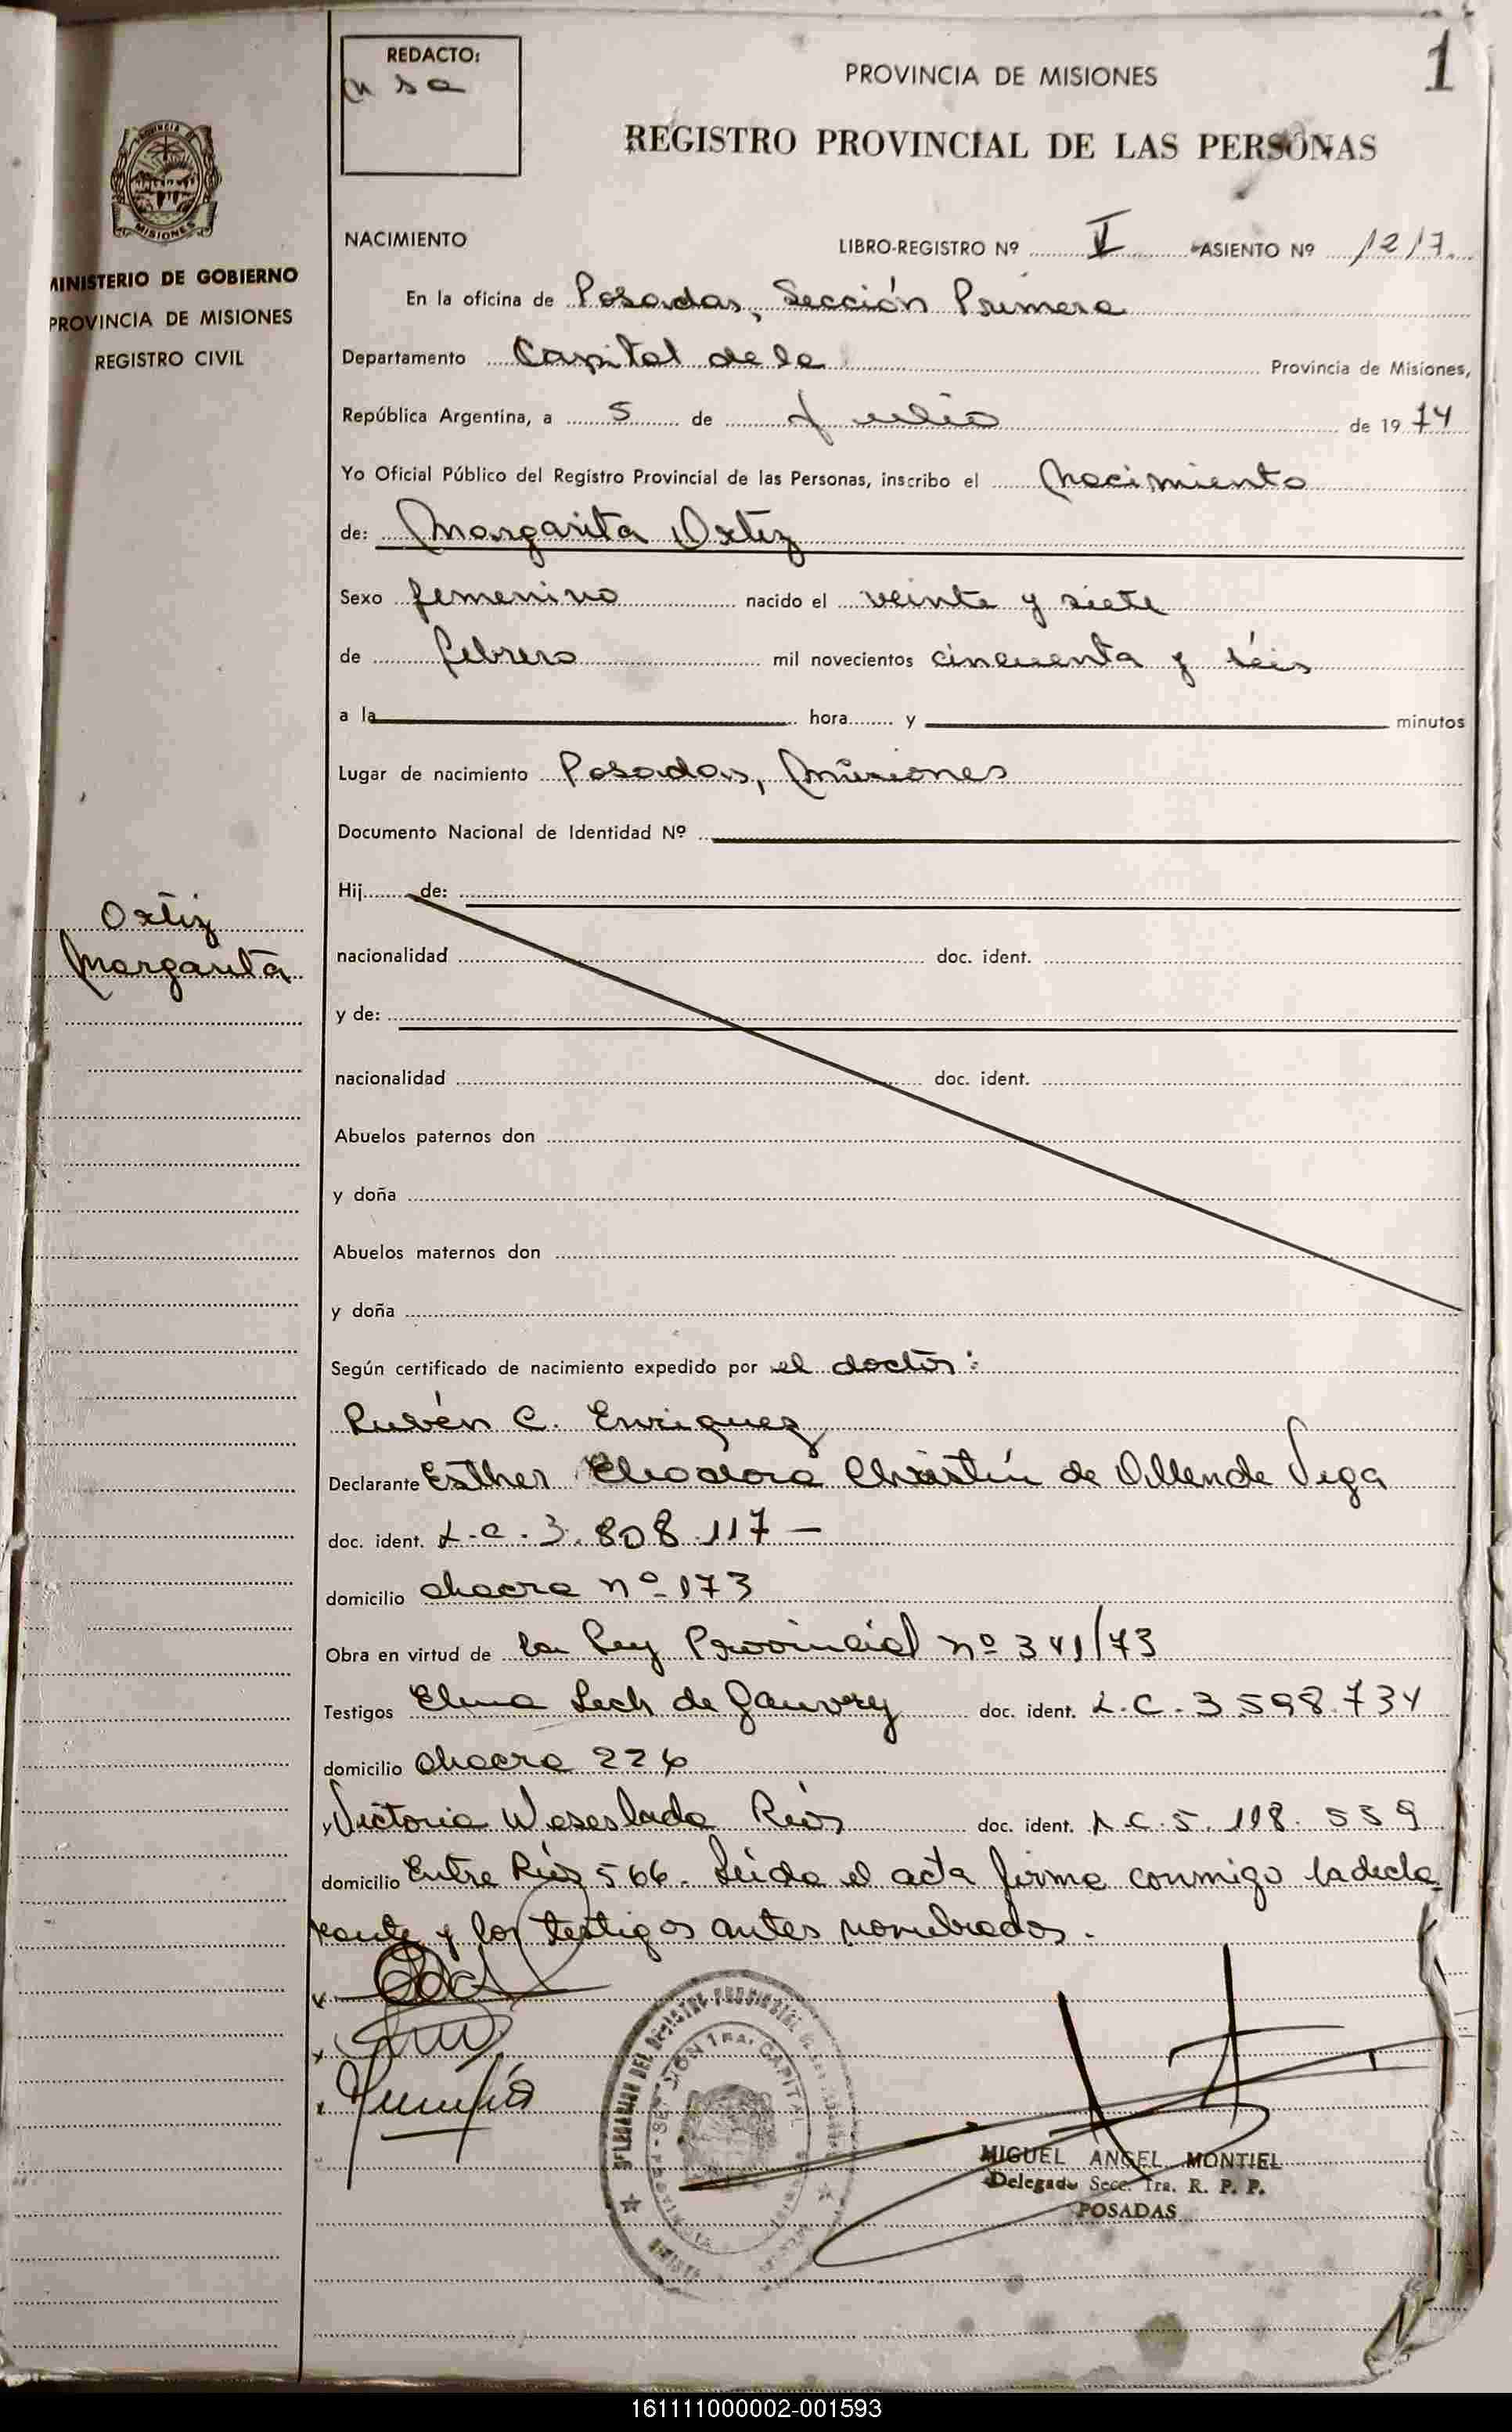 1
REDACTO:
PROVINCIA DE MISIONES
REGISTRO PROVINCIAL DE LAS PERSONAS
MISIONES
MINISTERIO DE GOBIERNO
PROVINCIA DE MISIONES
REGISTRO CIVIL
NACIMIENTO LIBRO-REGISTRO Nº V ASIENTO Nº 1217
En la oficina de Posadas, Sección Primera
Departamento Capital de la Provincia de Misiones,
República Argentina, a 5 de Julio de 1974
Yo Oficial Público del Registro Provincial de las Personas, inscribo el Nacimiento
de: Margarita Ortiz
Sexo femenino nacido el veinte y siete
de febrero mil novecientos cincuenta y séis
a la hora y minutos
Lugar de nacimiento Posadas, Misiones
Documento Nacional de Identidad Nº
Hij de:
Ortiz
Margarita
nacionalidad doc. ident.
y de:
nacionalidad doc. ident.
Abuelos paternos don
y doña
Abuelos maternos don
y doña
Según certificado de nacimiento expedido por el doctor:
Rubén C. Enriquez
Declarante Esther Eleodora Christín de Allende Vega
doc. ident. L.C. 3.808.117 —
domicilio chacra nº 173
Obra en virtud de la Ley Provincial nº 341/73
Testigos Elena Lech de Gauvry doc. ident. L.C. 3.598.734
domicilio chacra 226
y Victoria Weseslada Ríos doc. ident. L.C. 5.118.559
domicilio Entre Ríos 566. Leida el acta firma conmigo la decla
rante y los testigos antes nombrados.
MIGUEL ANGEL MONTIEL
Delegado Secc. 1ra. R. P. P.
POSADAS
161111000002-001593